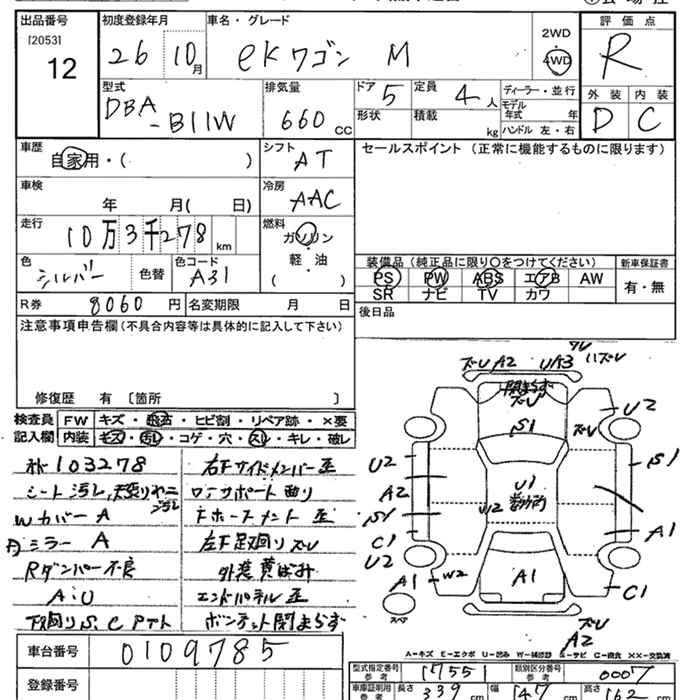 出品番号 初度登録年月 車名・グレード 2WD 評価点
[2053] 12 26 10月 eKワゴン M 4WD R
型式 排気量 ドア 5 定員 4人 ディーラー・並行 外装 内装
DBA-B11W 660CC 形状 積載 kg モデル年式 年 D C
ハンドル 左・右
車歴 シフト セールスポイント(正常に機能するものに限ります)
自家用・( ) AT
車検 冷房
年 月( 日) AAC
走行 燃料
10万3千278km ガソリン
軽・油
( )
色 色コード 装備品(純正品に限り○をつけてください) 新車保証書
シルバー 色替 A31 PS PW ABS エアB AW 有・無
SR ナビ TV カワ
R券 8060円 名変期限 月 日 後日品
注意事項申告欄(不具合内容等は具体的に記入して下さい)
修復歴 有 〔箇所 〕
検査員 FW キズ・飛石・ヒビ割・リペア跡・×要
記入欄 内装 キズ・汚レ・コゲ・穴・スレ・キレ・破レ
103278
シート汚レ、天張りヤニ汚レ
Wカバー A
ミラー A
Rダンパー不良
A:U
下回りS、C
右Fサイドメンバー歪
サポート曲り
左F足回りズレ
外装黄ばみ
エンドパネル歪
ボンネット閉まらず
ズレ A2 UA3 ズレ
閉まらず
ズレ
U2
ズレ
S1
U2
A2
S1
C1
U2
A1
W2
S1
U1
W2
A1
A1
C1
ズレ
A2
スペア
A-キズ E-エクボ U-凹み W-補修跡 S-サビ C-腐食 XX-交換済
車台番号 0109785
登録番号
型式指定番号 参考 17551 類別区分番号 参考 0007
車庫証明用 参考 長さ 339cm 幅 147cm 高さ 162cm